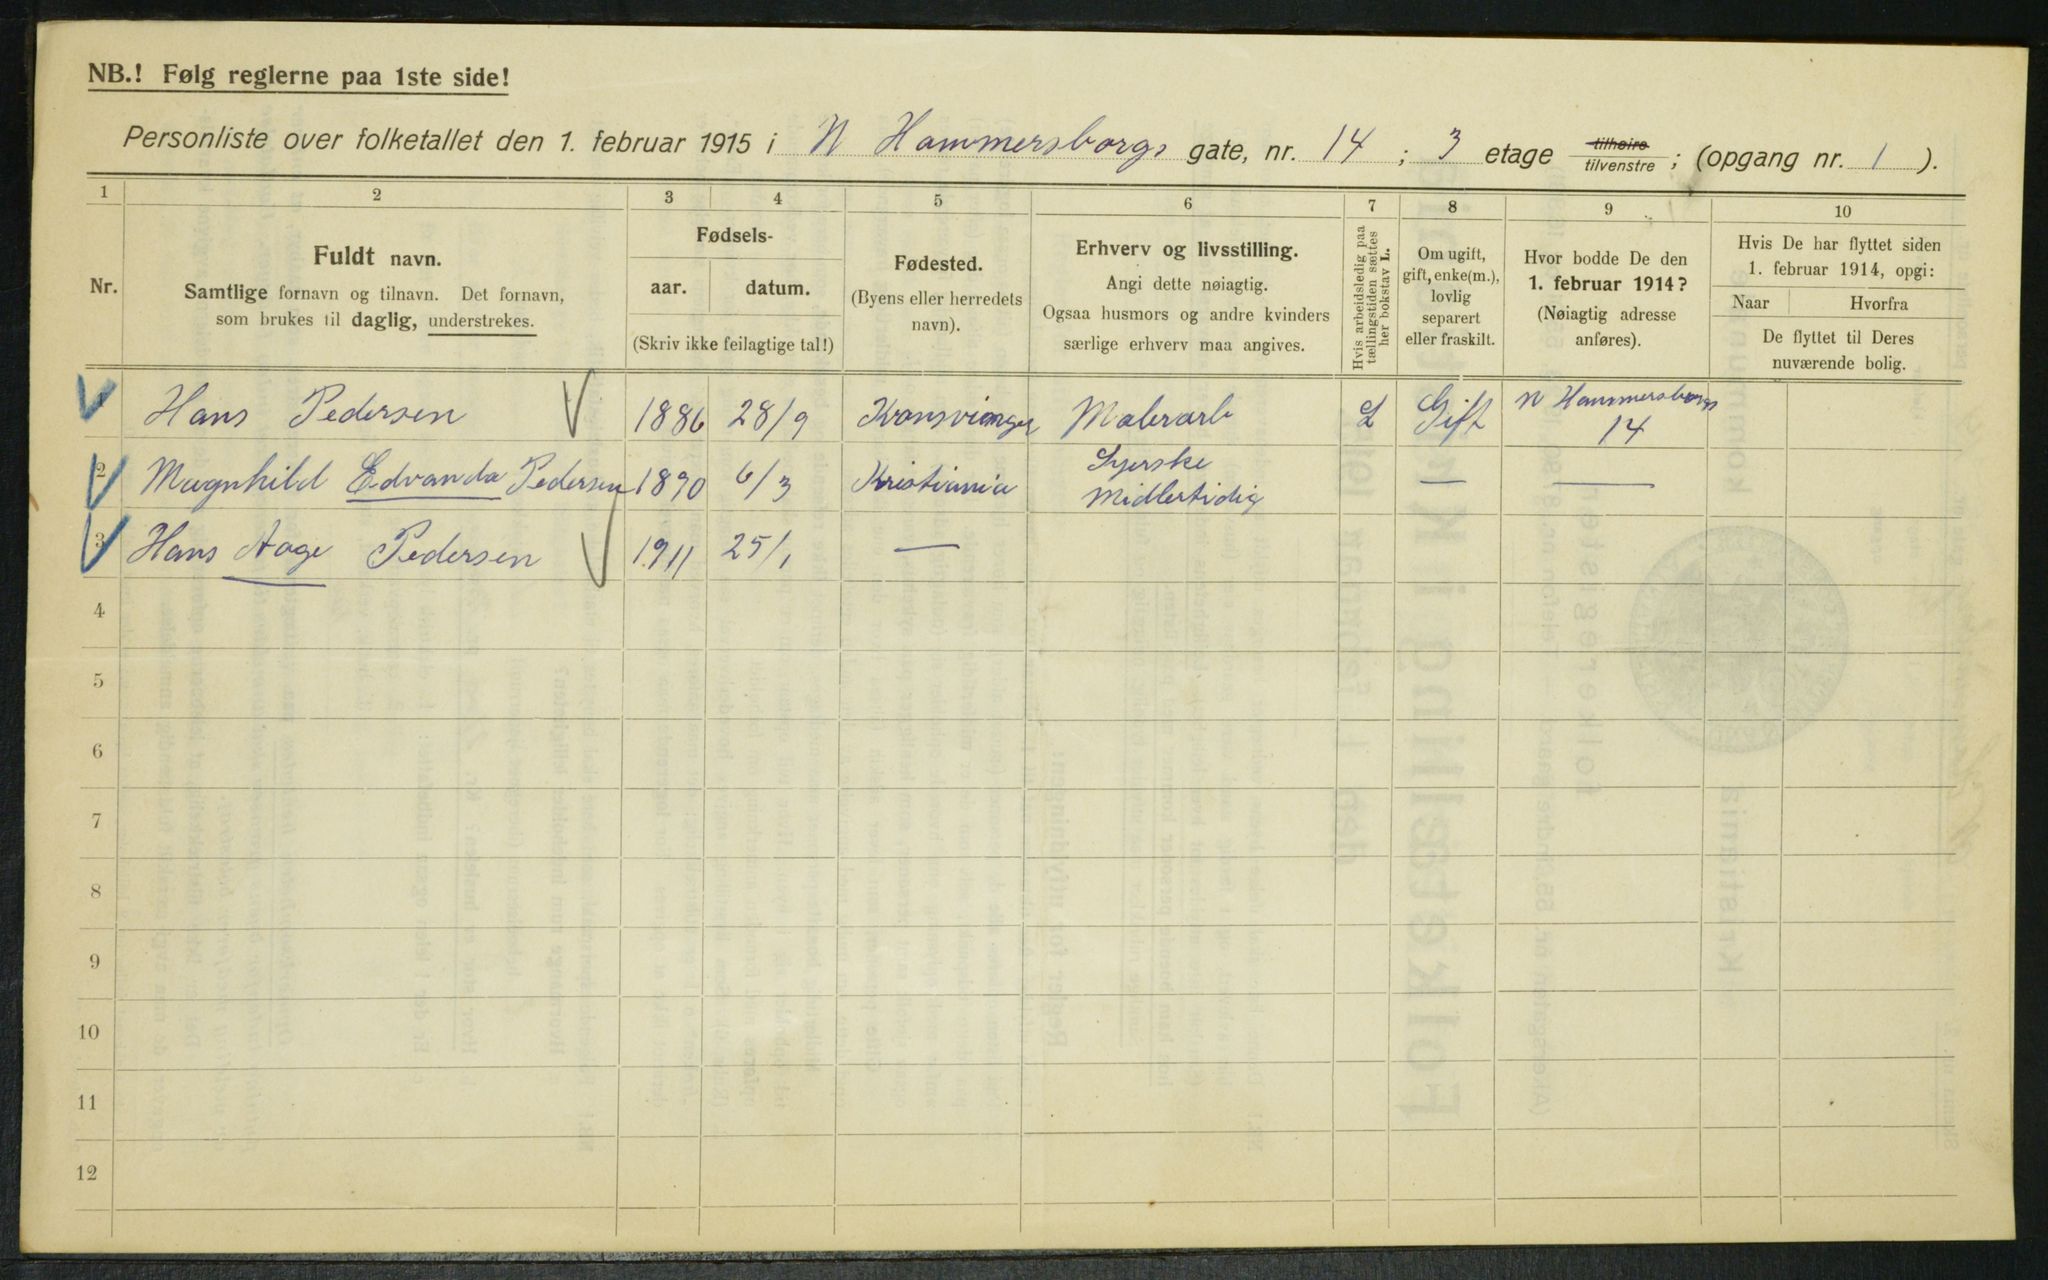 NB.! Følg reglerne paa 1ste side!
Personliste over folketallet den 1. februar 1915 i N Hammersborgs gate, nr. 14 ; 3 etage tilhøire tilvenstre ; (opgang nr. 1 ).
1 2 3 4 5 6 7 8 9 10
Nr.
Fuldt navn.
Samtlige fornavn og tilnavn. Det fornavn,
som brukes til daglig, understrekes.
Fødsels-
aar. datum.
(Skriv ikke feilagtige tal!)
Fødested.
(Byens eller herredets
navn).
Erhverv og livsstilling.
Angi dette nøiagtig.
Ogsaa husmors og andre kvinders
særlige erhverv maa angives.
Hvis arbeidsledig paa
tællingstiden sættes
her bokstav L.
Om ugift,
gift, enke(m.),
lovlig
separert
eller fraskilt.
Hvor bodde De den
1. februar 1914?
(Nøiagtig adresse
anføres).
Hvis De har flyttet siden
1. februar 1914, opgi:
Naar Hvorfra
De flyttet til Deres
nuværende bolig.
Hans Pedersen 1886 28/9 Konsvinger Malerarb L Gift N Hammersborgs 14
2 Magnhild Edvanda Pedersen 1890 6/3 Kristiania Syerske Midlertidig — —
3 Hans Aage Pedersen 1911 25/1 —
4
5
6
7
8
9
10
11
12